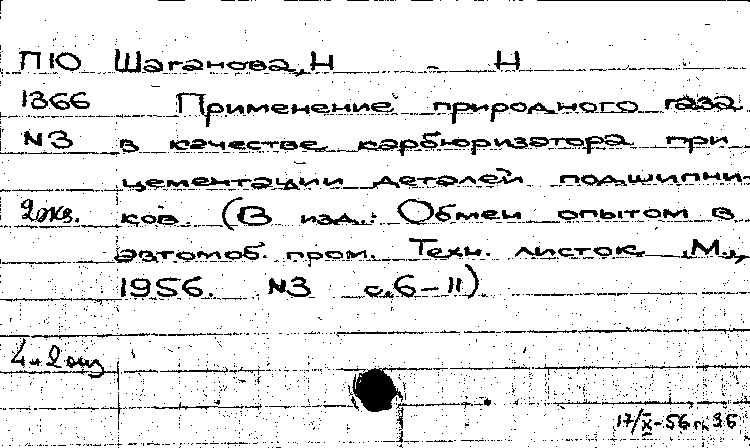 П10 Шаганова, Н - Н
1366 Применение природного газа
N3 в качестве карбюризатора при
цементации деталей подшипни-
2 экз. ков. (В изд.: Обмен опытом в
автомоб. пром. Техн. листок. М.,
1956. N3 с.6-11)
17/X-56 г.